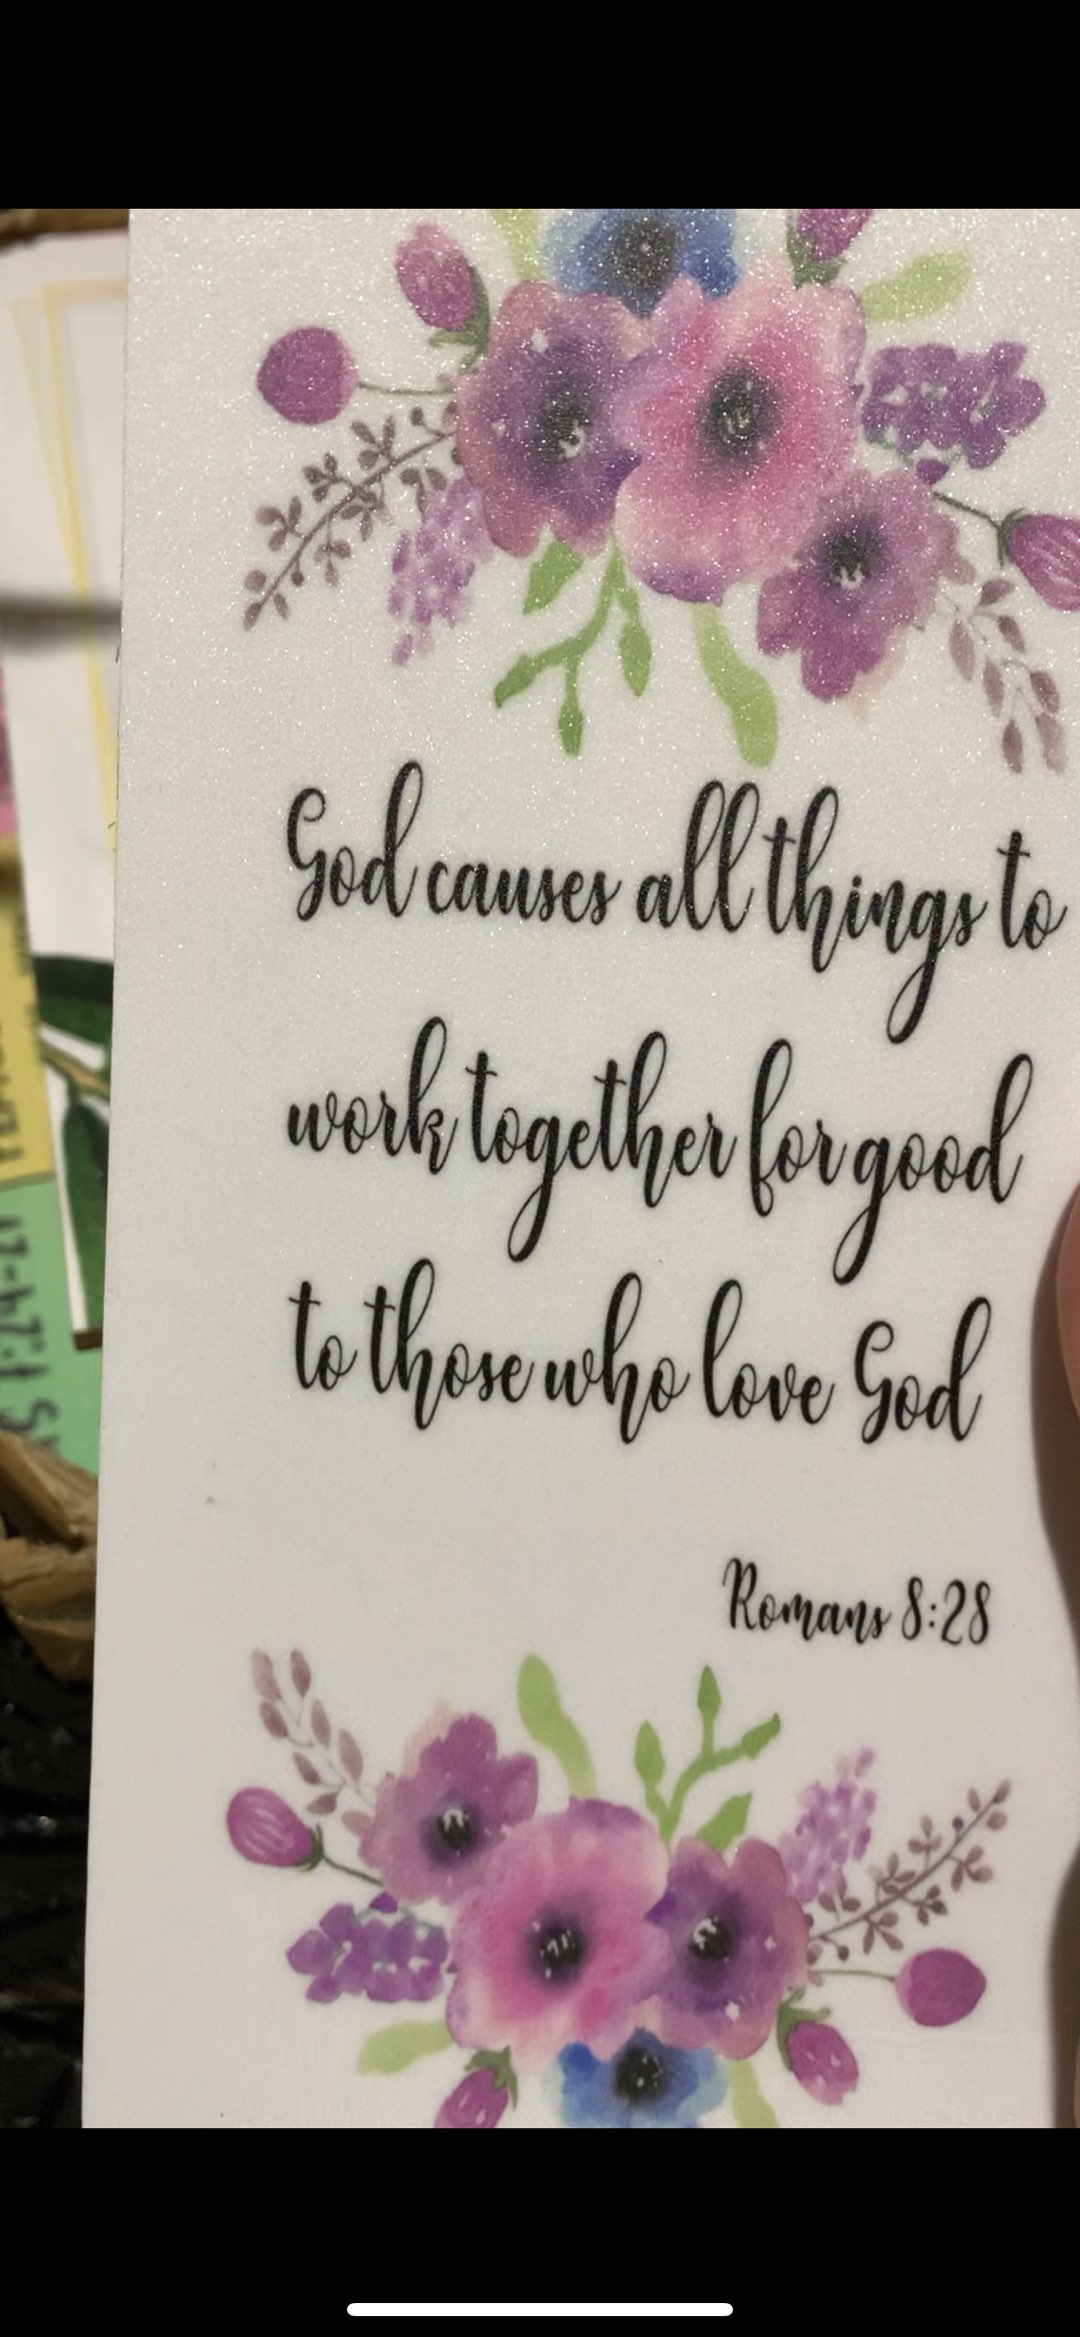 God causes all things to
work together for good
to those who love God
Romans 8:28